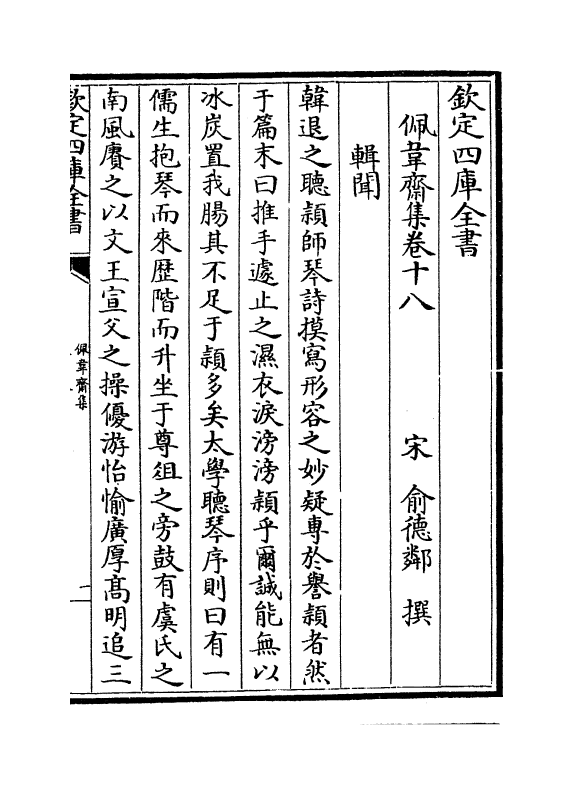 欽定四庫全書
佩韋齋集卷十八　宋　俞德鄰　撰
輯聞
韓退之聽頴師琴詩摸寫形容之妙疑專於譽頴者然
于篇末曰推手遽止之濕衣淚滂滂頴乎爾誠能無以
冰炭置我腸其不足于頴多矣太學聽琴序則曰有一
儒生抱琴而來歴階而升坐于尊俎之旁鼓有虞氏之
南風賡之以文王宣父之操優游怡愉廣厚髙明追三
欽定四庫全書
佩韋齋集